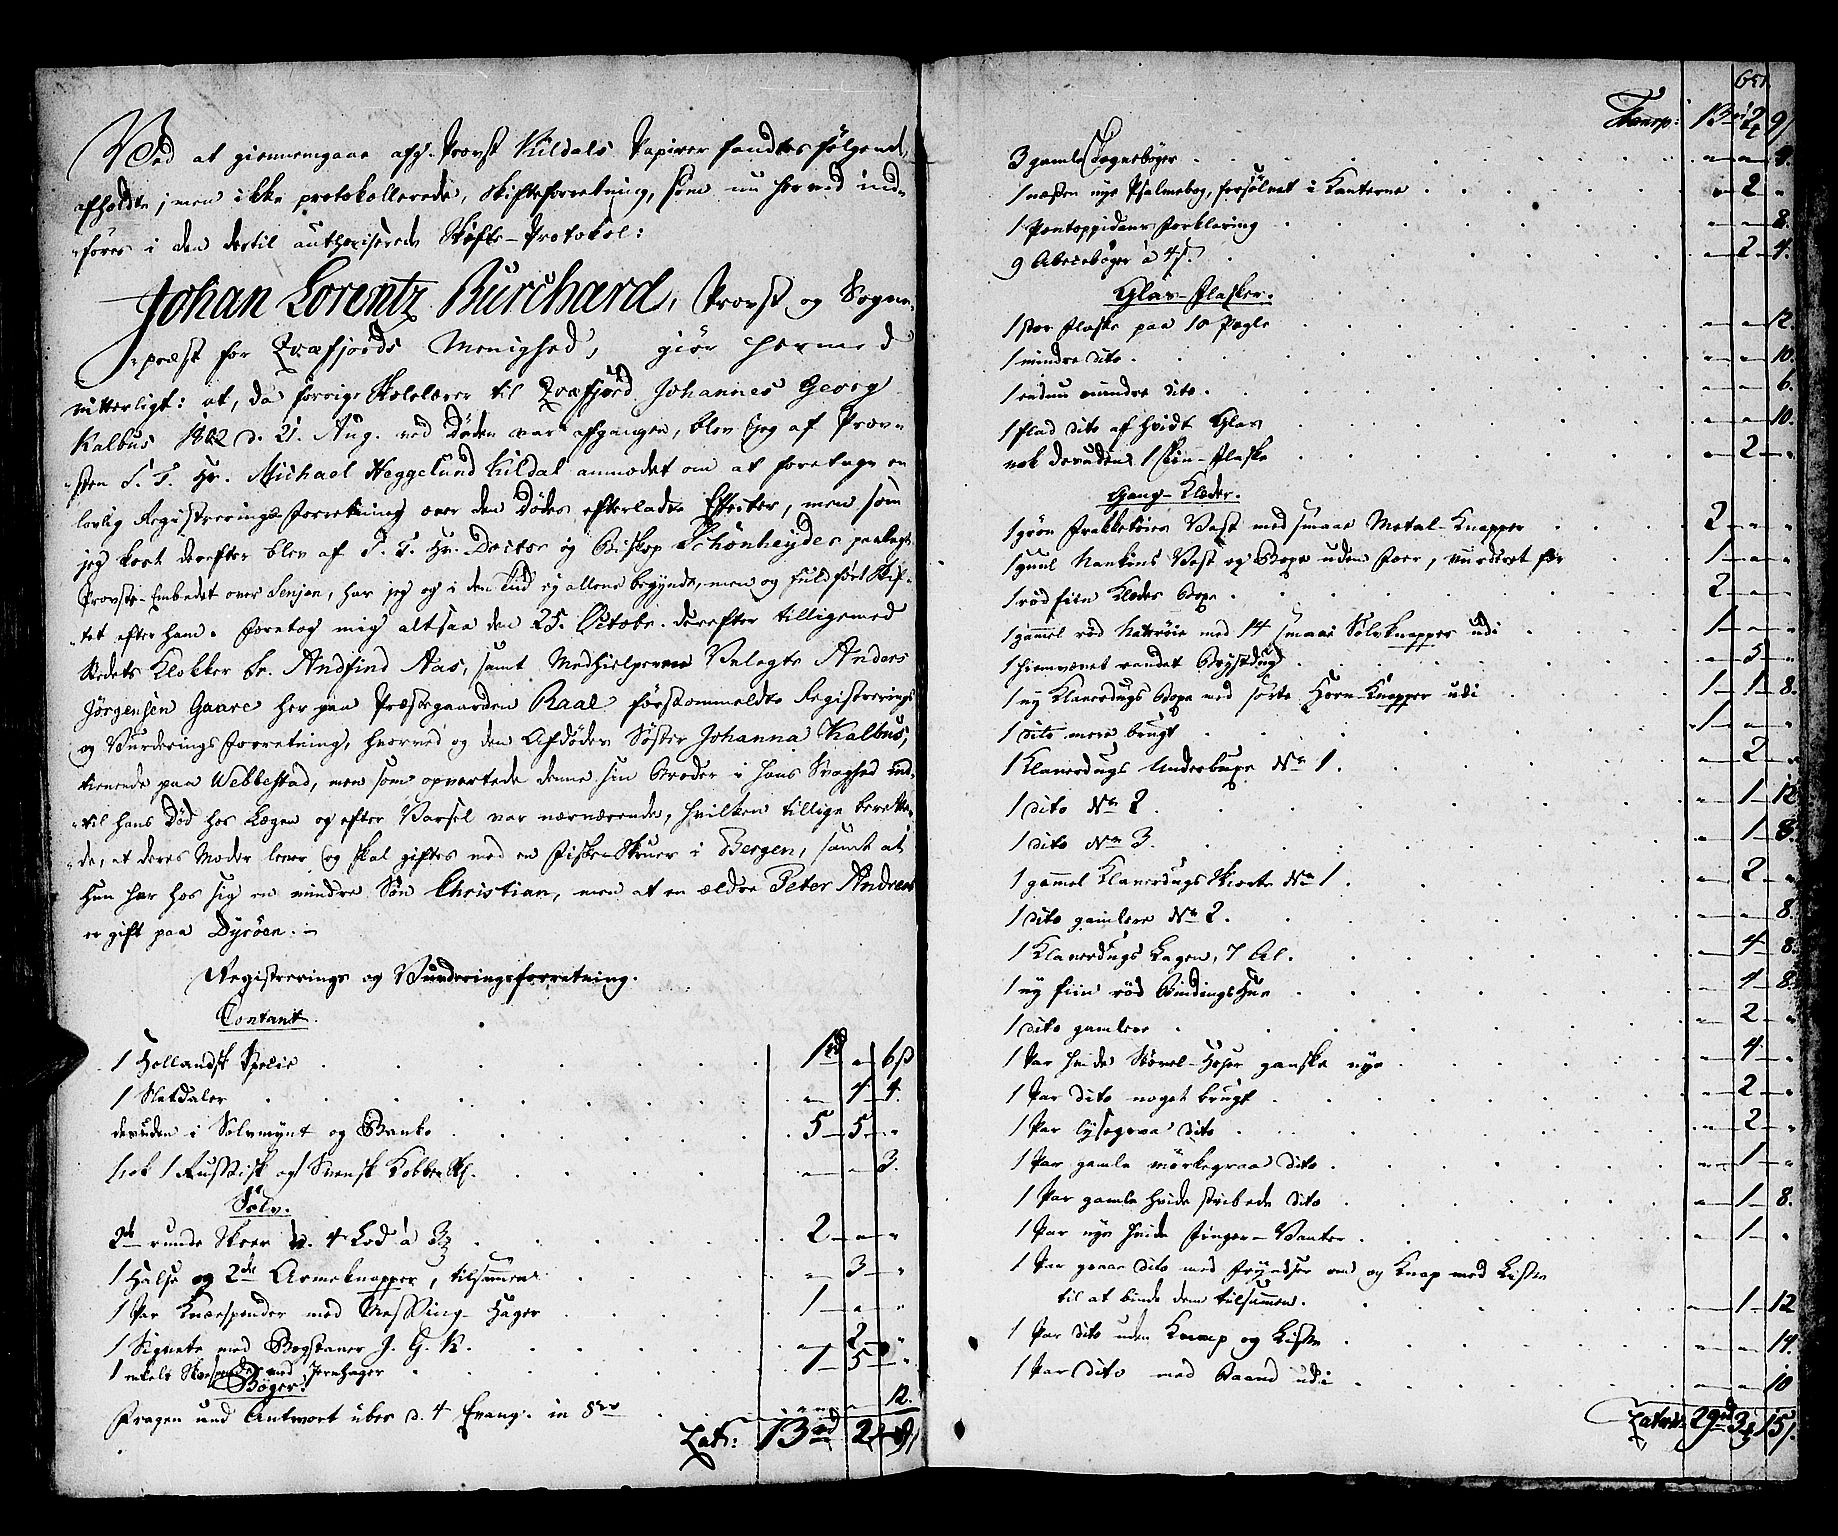 Ved at giennemgaae afg. Provst Kildals Papirer fandtes følgende,
afholdte, men ikke protokollerede, Skifteforretning, som nu herved ind-
føres i den dertil authoriserede Skifte-Protokol:
Johan Lorentz Burchard, Provst og Sogne-
præst for Qvæfjords Menighed, giør hermed
vitterligt: at, da forrige Skolelærer til Qvæfjord Johannes Georg
Kalbus 1802 d. 21. Aug. ved Døden var afgangen, blev jeg af Prov-
sten S. T. Hr. Michael Heggelund Kildal anmodet om at foretage en
lovlig Registrerings Forretning over den Dødes efterladte Effecter, men som
jeg kort derefter blev af S. T. Hr. Doctor og Biskop Schönheyder paalagt
Provste-Embedet over Senjen, har jeg og i den Tiid ey allene begyndt, men og fuldført Skif-
tet efter ham. Foretog mig altsaa den 25. Octobr. derefter tilligemed
Stedets Klokker Sr. Andfind Aas, samt Medhielperen Velagte Anders
Jörgensen Gaare her paa Præstegaarden Raae førstommeldte Registrerings
og Vurderings Forretning, hvorved og den Afdødes Søster Johanna Kalbus,
tienende paa Webbestad, men som opvartede denne sin Broder i hans Svaghed ind-
til hans Død hos Lægen og efter Varsel var nærværende, hvilken tillige berette-
de, at deres Moder lever og skal giftes med en Fiske-Skruer i Bergen, samt at
hun har hos sig en mindre Søn Christian, men at en ældre Peter Andreas
er gift paa Dyröen.
Registrerings og Vurderingsforretning.
Contant.
1 Hollandsk Specie 1 rd " 6 ß
1 Sletdaler " 4 4.
desuden i Sølvmynt og Banko 5 5 "
nok 1 Russisk og 1 Svensk Kobber Sk. " " 3.
Sølv.
2de runde Skeer v. 4 Lod à 3 2 " "
1 Halse og 2de Armeknapper, tilsammen " 3 "
1 Par Knæespender med Messing Hager 1 " "
1 Signete med Bogstaver J. G. K. " 2 "
1 enkelt Skoespende med Jernhager 1 5 "
Bøger.
Fragen und Antwort über d. 4 Evang. in 8vo " " 12.
Lats: 13 rd 2 9
651.
Transp: 13 2 9
3 gamle Sognebøger " " 4.
1 næsten nye Psalmebog, forsølvet i Kanterne " 2 "
1 Pontoppidans Forklaring " " 8.
9 Abecebøger à 4 ß. " 2 4.
Glas-Flasker.
1 stor Flaske paa 10 Pægle " " 12.
1 mindre dito " " 10.
1 endnu mindre dito. " " 6.
1 flad dito af hvidt Glas " " 10.
nok desuden 1 Flaske " 2 "
Gang-Klæder.
1 grøn Frakketøies Vest med smaae Metal-Knapper 2 " "
1 guul Nankins Vest og Buxe uden Foer, vurderet for 1 " "
1 rød fiin Klædes Buxe 2 " "
1 gamel rød Nattrøie med 14 smaae Sølvknapper udi 1 " "
1 hiemvævet randet Brystdug " 5 "
1 ny Klaverdugs Buxe med sorte Horn-Knapper udi 1 1 8.
1 dito mere brugt 1 " "
1 Klaverdugs Underbuxe No 1. " 2 "
1 dito No 2 " 1 12
1 dito No 3. " 1 8.
1 gamel Klaverdugs Skiorte No 1. " 2 "
1 dito gamlere No 2. " " 8.
1 Klaverdugs Lagen, 7 Al. " 4 8.
1 ny fiin rød Bindings Hue " 4 8.
1 dito gamlere " 2 "
1 Par hvide Støvel-Hoser ganske nye " 4 "
1 Par dito noget brugt " 2 "
1 Par lysegraa dito " 2 "
1 Par gamle mørkegraa dito. " 1 "
1 Par gamle hvide stribede dito " 1 8.
1 Par nye hvide Finger-Vanter. " 1 "
1 Par graae dito med Fryndser om og Knap med Lisse
til at binde dem tilsammen. " 1 12
1 Par dito uden Knap og Lisse " " 14.
1 Par dito med Baand udi " " 10
Lateris 29 rd 3 15.